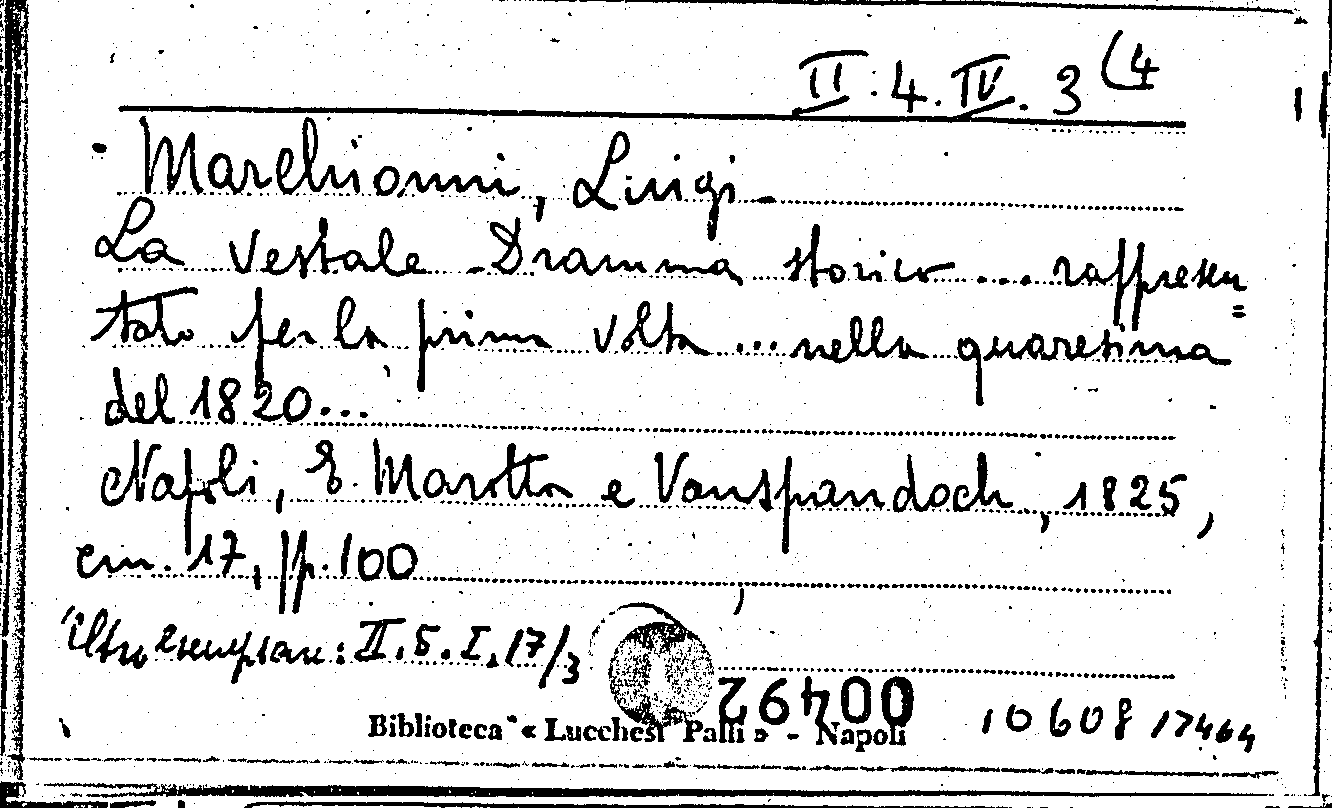 II.4.IV.3(4
Marchionni, Luigi.
La Vestale. Dramma storico ... rappresen=
tato per la prima volta ... nella quaresima
del 1820...
Napoli, E. Marotta e Vanspandoch, 1825,
cm. 17, pp. 100
Altro esemplare: II.5.I.17/3
00492
Biblioteca « Lucchesi Palli » - Napoli
10608 17464